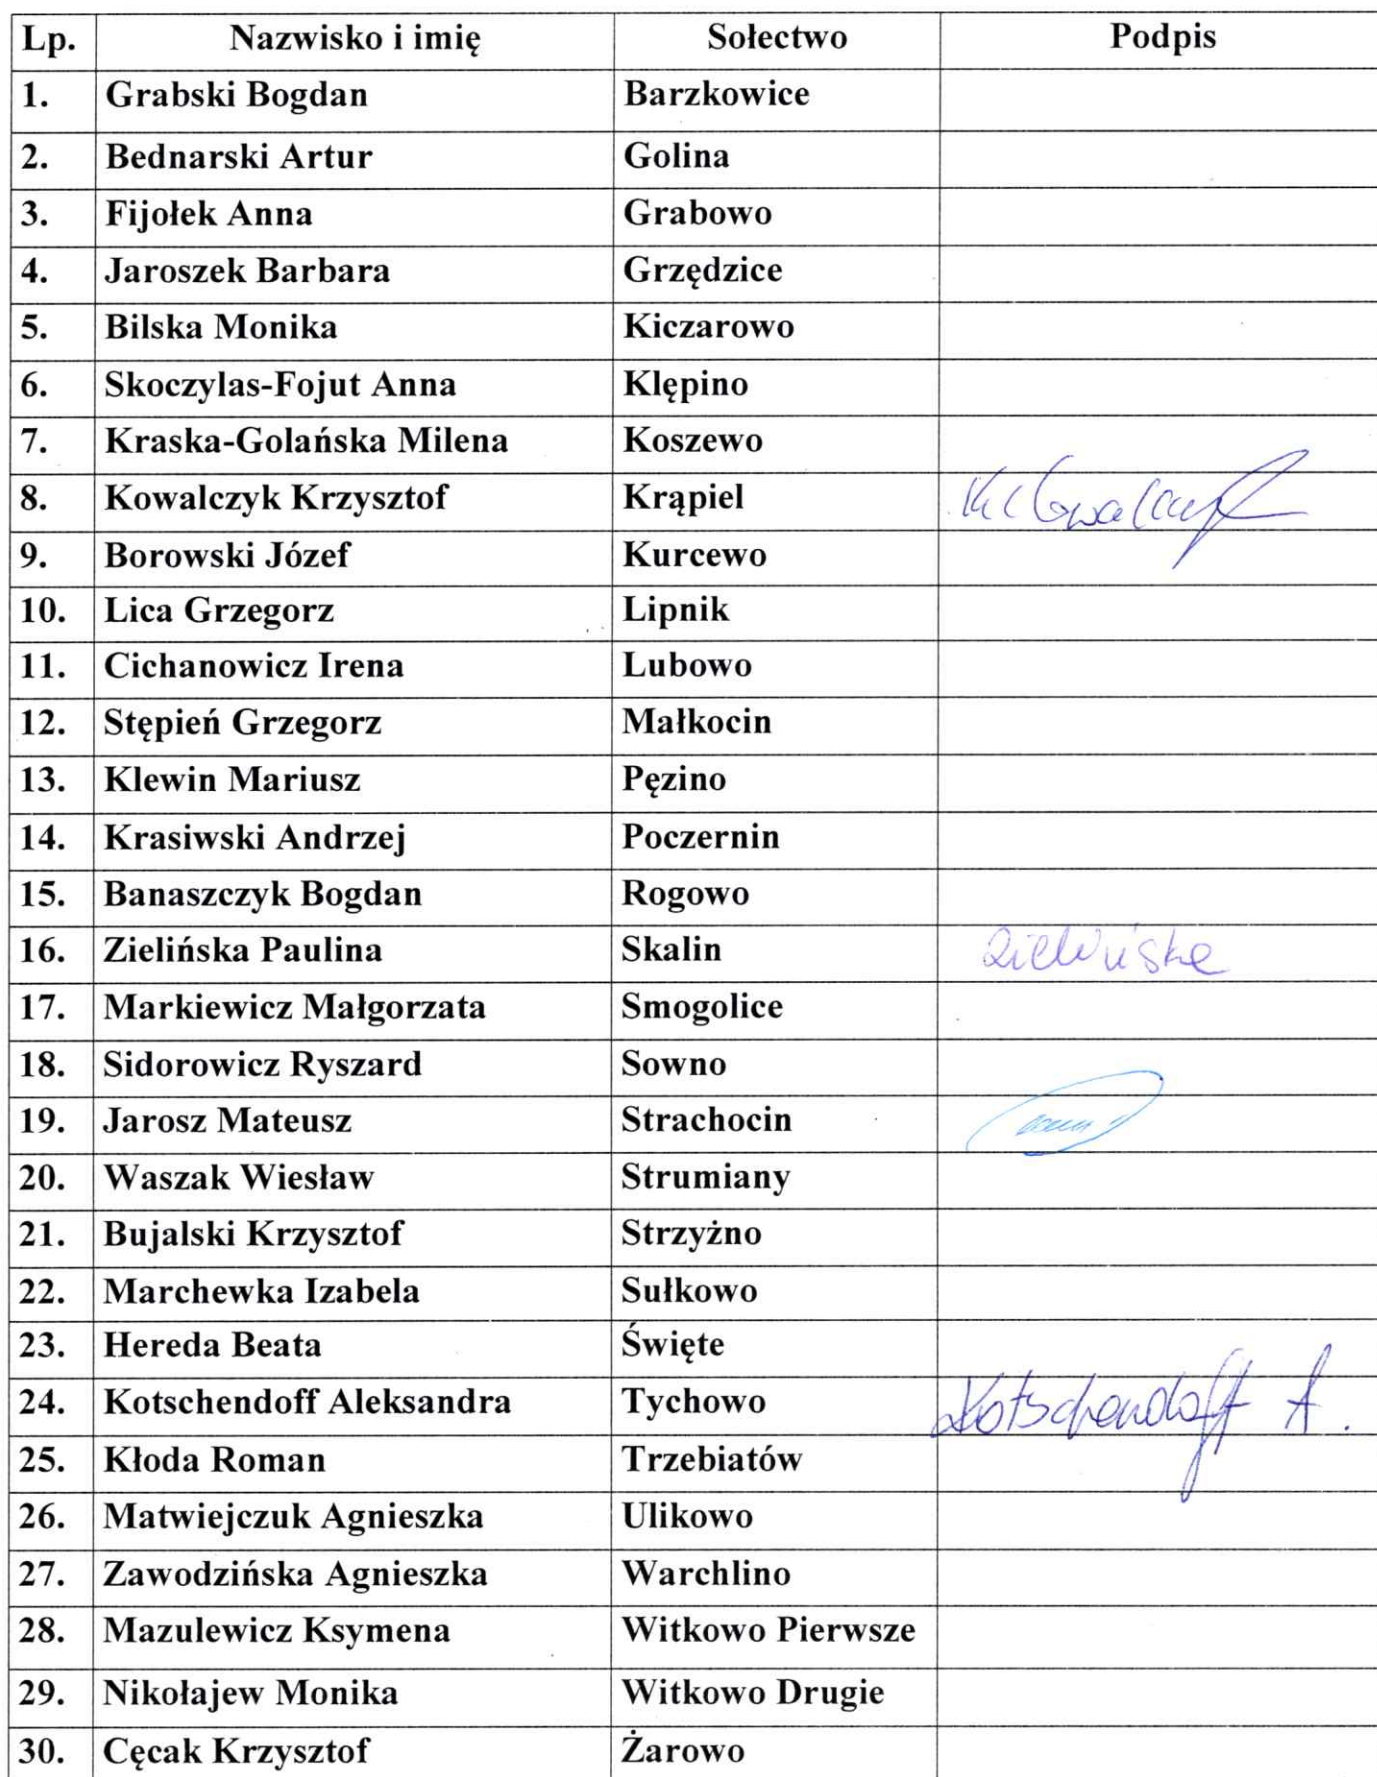 Lp. Nazwisko i imię Sołectwo Podpis
1. Grabski Bogdan Barzkowice
2. Bednarski Artur Golina
3. Fijołek Anna Grabowo
4. Jaroszek Barbara Grzędzice
5. Bilska Monika Kiczarowo
6. Skoczylas-Fojut Anna Klępino
7. Kraska-Golańska Milena Koszewo
8. Kowalczyk Krzysztof Krąpiel
9. Borowski Józef Kurcewo
10. Lica Grzegorz Lipnik
11. Cichanowicz Irena Lubowo
12. Stępień Grzegorz Małkocin
13. Klewin Mariusz Pęzino
14. Krasiwski Andrzej Poczernin
15. Banaszczyk Bogdan Rogowo
16. Zielińska Paulina Skalin Zielińska
17. Markiewicz Małgorzata Smogolice
18. Sidorowicz Ryszard Sowno
19. Jarosz Mateusz Strachocin
20. Waszak Wiesław Strumiany
21. Bujalski Krzysztof Strzyżno
22. Marchewka Izabela Sułkowo
23. Hereda Beata Święte
24. Kotschendoff Aleksandra Tychowo Kotschendoff A.
25. Kłoda Roman Trzebiatów
26. Matwiejczuk Agnieszka Ulikowo
27. Zawodzińska Agnieszka Warchlino
28. Mazulewicz Ksymena Witkowo Pierwsze
29. Nikołajew Monika Witkowo Drugie
30. Cęcak Krzysztof Żarowo